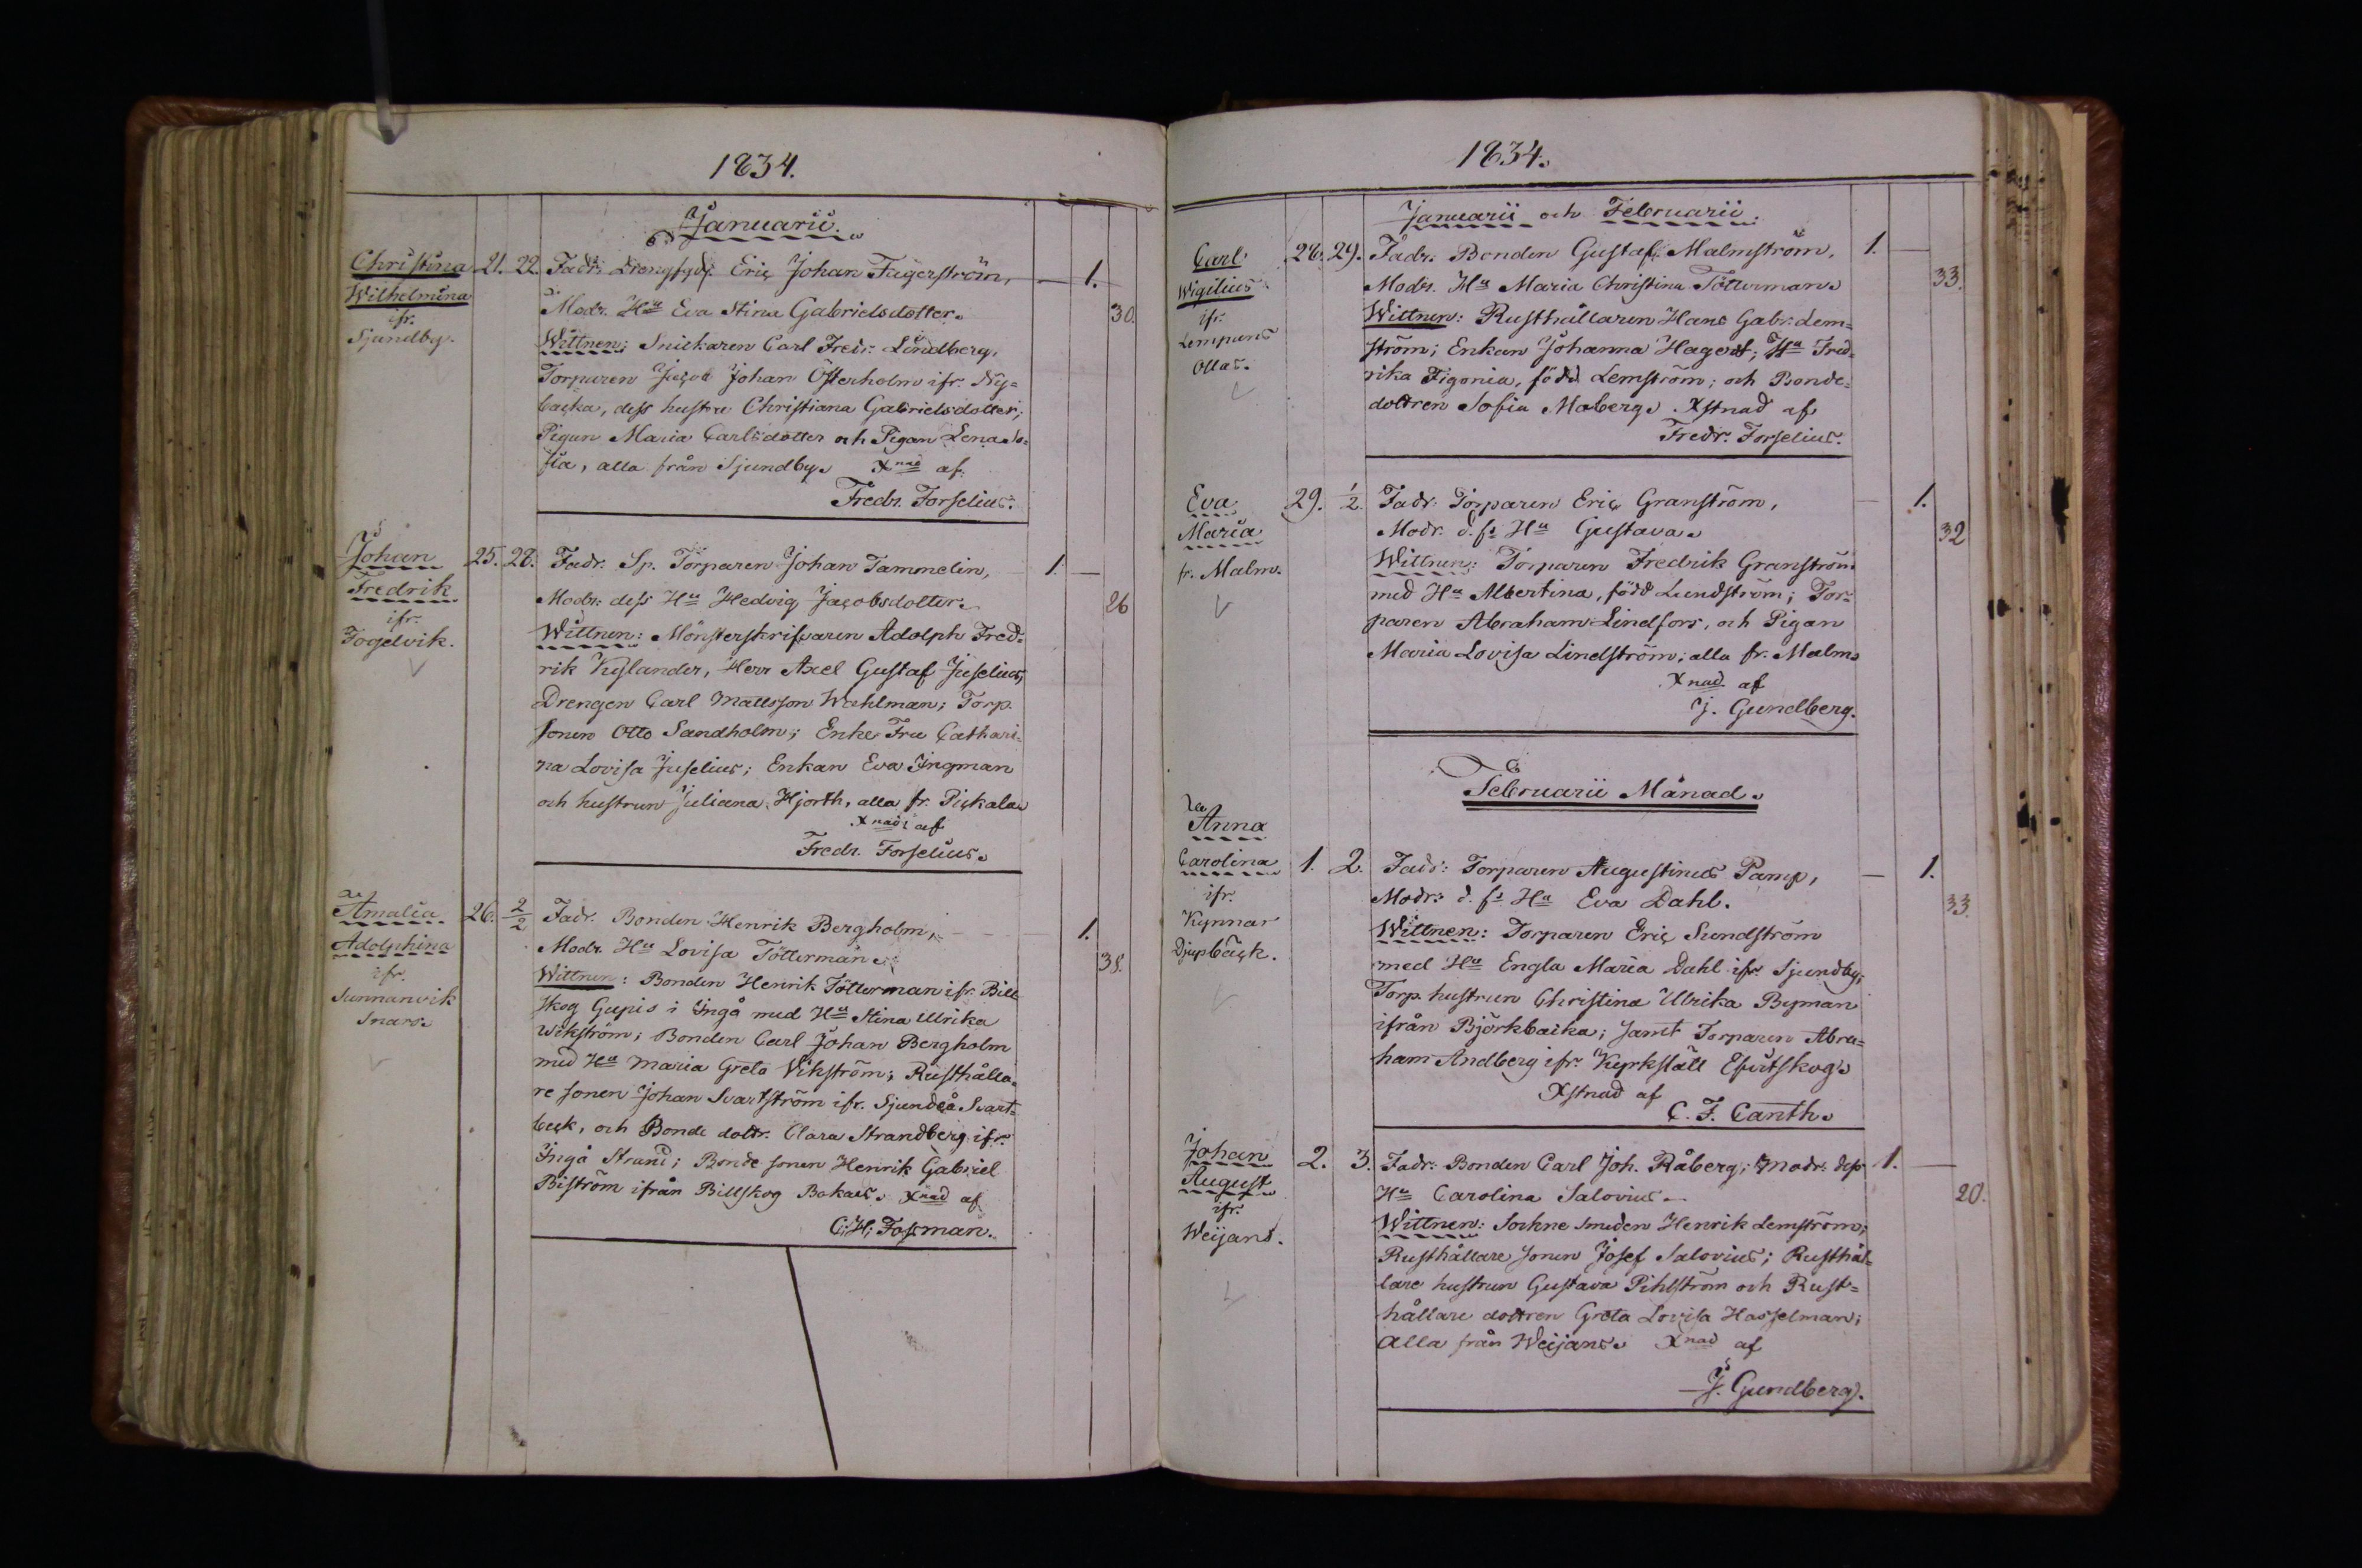 1834.
Januarii.
Christina 21. 22. Fadr. Eric Johan Fagerström, — 1.
Wilhelmina
ifr.
Sjundby.
Modr. Hu Eva Stina Gabrielsdotter. 30.
Wittnen: Snickaren Carl Fredr. Lindberg,
Torparen Jacob Johan Österholm ifr. Ny=
backa, dess hustru Christiana Gabrielsdotter;
Pigan Maria Carlsdotter och Pigan Lena So=
fia, alla från Sjundby. Xnad af.
Fredr. Forselius.
Johan 25. 28. Fadr. Sp. Torparen Johan Tammelin, 1. —
Fredrik
ifr.
Fogelvik.
Modr. dess Hu Hedvig Jacobsdotter. 26
Wittnen: Mönsterskrifvaren Adolph Fred=
rik Kylander, Herr Axel Gustaf Juselius,
Drengen Carl Mattsson Wahlman; Torp.
sonen Otto Sandholm; Enke Fru Cathari=
na Lovisa Juselius; Enkan Eva Ingman
och hustrun Juliana Hjorth, alla fr. Pickala
Xnad af
Fredr. Forselius.
Amalia 26. 2/2 Fadr. Bonden Henrik Bergholm, — 1.
Adolphina
ifr.
Sunnanvik
Snars.
Modr. Hu Lovisa Tötterman. 38.
Wittnen: Bonden Henrik Tötterman ifr. Bill
skog Gepis i Ingå med Hu Stina Ulrika
Wikström; Bonden Carl Johan Bergholm
med Hu Maria Greta Vikström; Rusthålla=
re sonen Johan Svartström ifr. Sjundeå Svart=
beck, och Bonde dottr. Clara Strandberg ifr.
Ingå Strand; Bonde sonen Henrik Gabriel
Biström ifrån Billskog Bakars. Xnad af
C. H. Fosman.
1834.
Januarii och Februarii.
Carl 28. 29. Fadr. Bonden Gustaf Malmström, 1. —
Wigilius
ifr.
Lempans
Ollas.
Modr. Hu Maria Christina Tötterman. 33.
Wittnen: Rusthållaren Hans Gabr. Lem=
ström; Enkan Johanna Hagert; Hu Fred=
rika Figonia, född Lemström; och Bonde=
dottren Sofia Moberg. Xstnad af
Fredr. Forselius.
Eva 29. 1/2. Fadr. Torparen Eric Granström, — 1.
Maria
fr. Malm.
Modr. d. fs Hu Gustava. 32
Wittnen: Torparen Fredrik Granström
med Hu Albertina, född Lundström; Tor=
paren Abraham Lindfors, och Pigan
Maria Lovisa Lindström; alla fr. Malm.
Xnad af
J. Gundberg.
Februarii Månad.
Anna
Carolina 1. 2. Fadr: Torparen Augustinus Pamp, — 1.
ifr.
Kynnar
Djupbäck.
Modr: d. fs Hu Eva Dahl. 33.
Wittnen: Torparen Eric Sundström
med Hu Engla Maria Dahl ifr. Sjundby;
Torp. hustrun Christina Ulrika Byman
ifrån Björkbacka; samt Torparen Abra=
ham Andberg ifr. Kyrkslätt Esvitskog.
Xstnad af
C. F. Canth.
Johan 2. 3. Fadr: Bonden Carl Joh. Råberg; Modr. dess 1. —
August
ifr.
Weijans.
Hu Carolina Salovius. 20.
Wittnen: Sockne smeden Henrik Lemström;
Rusthållare sonen Josef Salovius; Rusthål=
lare hustrun Gustava Pihlström och Rust=
hållare dottren Greta Lovisa Hasselman;
Alla från Weijans. Xnad af
J. Gundberg.